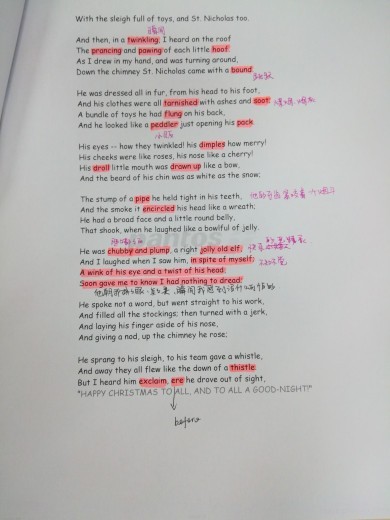 With the sleigh full of toys, and St. Nicholas too.
瞬间
And then, in a twinkling, I heard on the roof
The prancing and pawing of each little hoof.
As I drew in my hand, and was turning around,
Down the chimney St. Nicholas came with a bound.
He was dressed all in fur, from his head to his foot,
And his clothes were all tarnished with ashes and soot;
A bundle of toys he had flung on his back,
And he looked like a peddler just opening his pack.
小贩
His eyes -- how they twinkled! his dimples how merry!
His cheeks were like roses, his nose like a cherry!
His droll little mouth was drawn up like a bow,
And the beard of his chin was as white as the snow;
The stump of a pipe he held tight in his teeth,
And the smoke it encircled his head like a wreath;
He had a broad face and a little round belly,
That shook, when he laughed like a bowlful of jelly.
He was chubby and plump, a right jolly old elf,
And I laughed when I saw him, in spite of myself;
A wink of his eye and a twist of his head,
Soon gave me to know I had nothing to dread;
He spoke not a word, but went straight to his work,
And filled all the stockings; then turned with a jerk,
And laying his finger aside of his nose,
And giving a nod, up the chimney he rose;
He sprang to his sleigh, to his team gave a whistle,
And away they all flew like the down of a thistle.
But I heard him exclaim, ere he drove out of sight,
"HAPPY CHRISTMAS TO ALL, AND TO ALL A GOOD-NIGHT!"
before